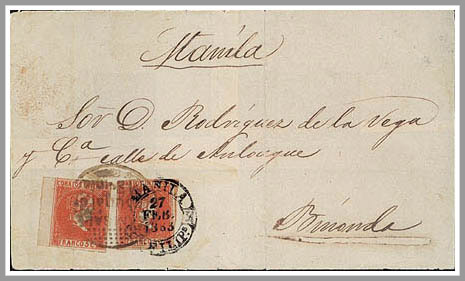 Manila
Sor D. Rodriguez de la Vega
y Cª calle de Anloague
Binondo
CORREOS
FRANCO 5
MANILA
27
FEB.
FILIPS